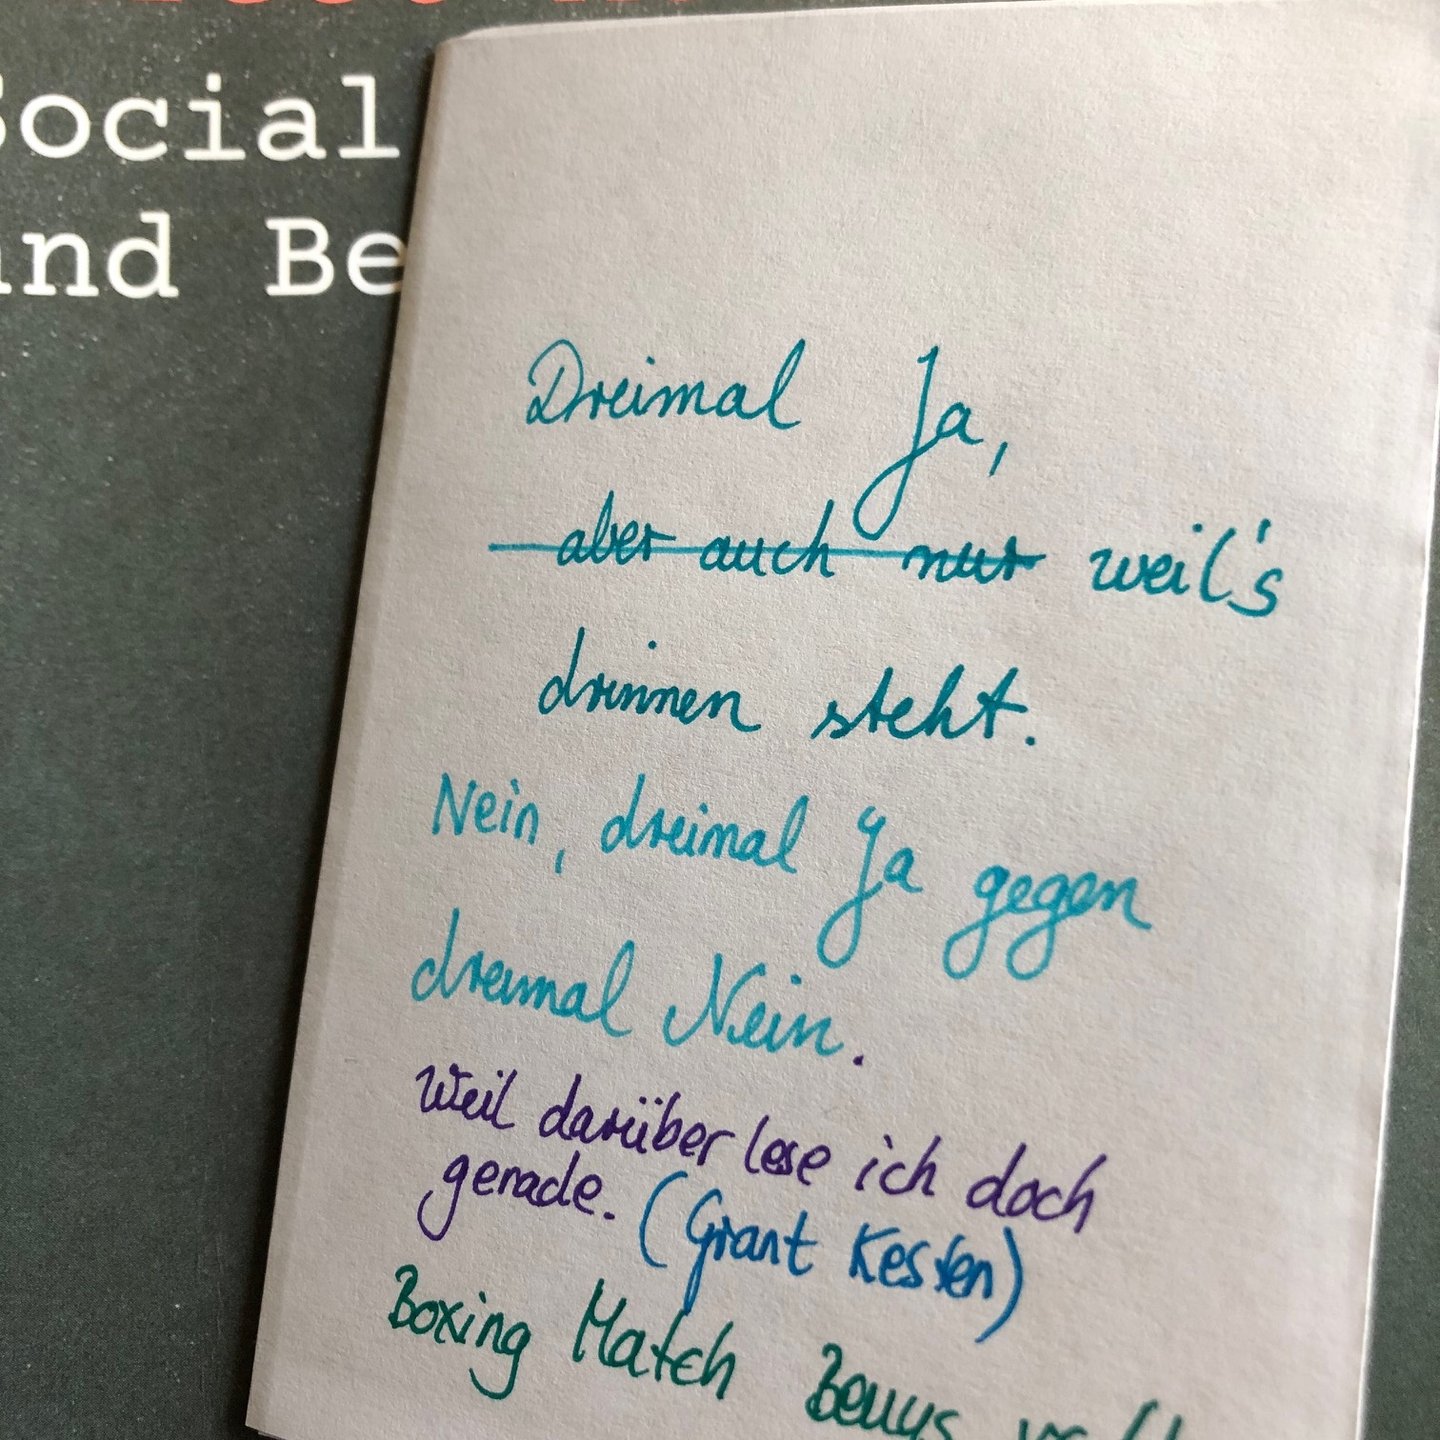 Social
und Be
Dreimal Ja,
aber auch nur weil's
drinnen steht.
Nein, dreimal Ja gegen
dreimal Nein.
Weil darüber lese ich doch
gerade. (Grant Kesten)
Boxing Match Beuys